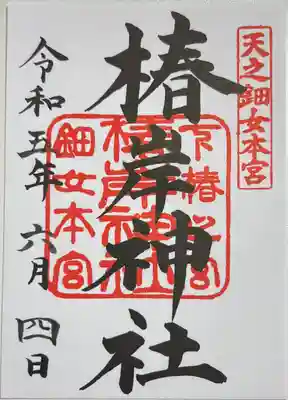 天之鈿女本宮
椿岸神社
令和五年六月四日
椿岸神社
鈿女本宮